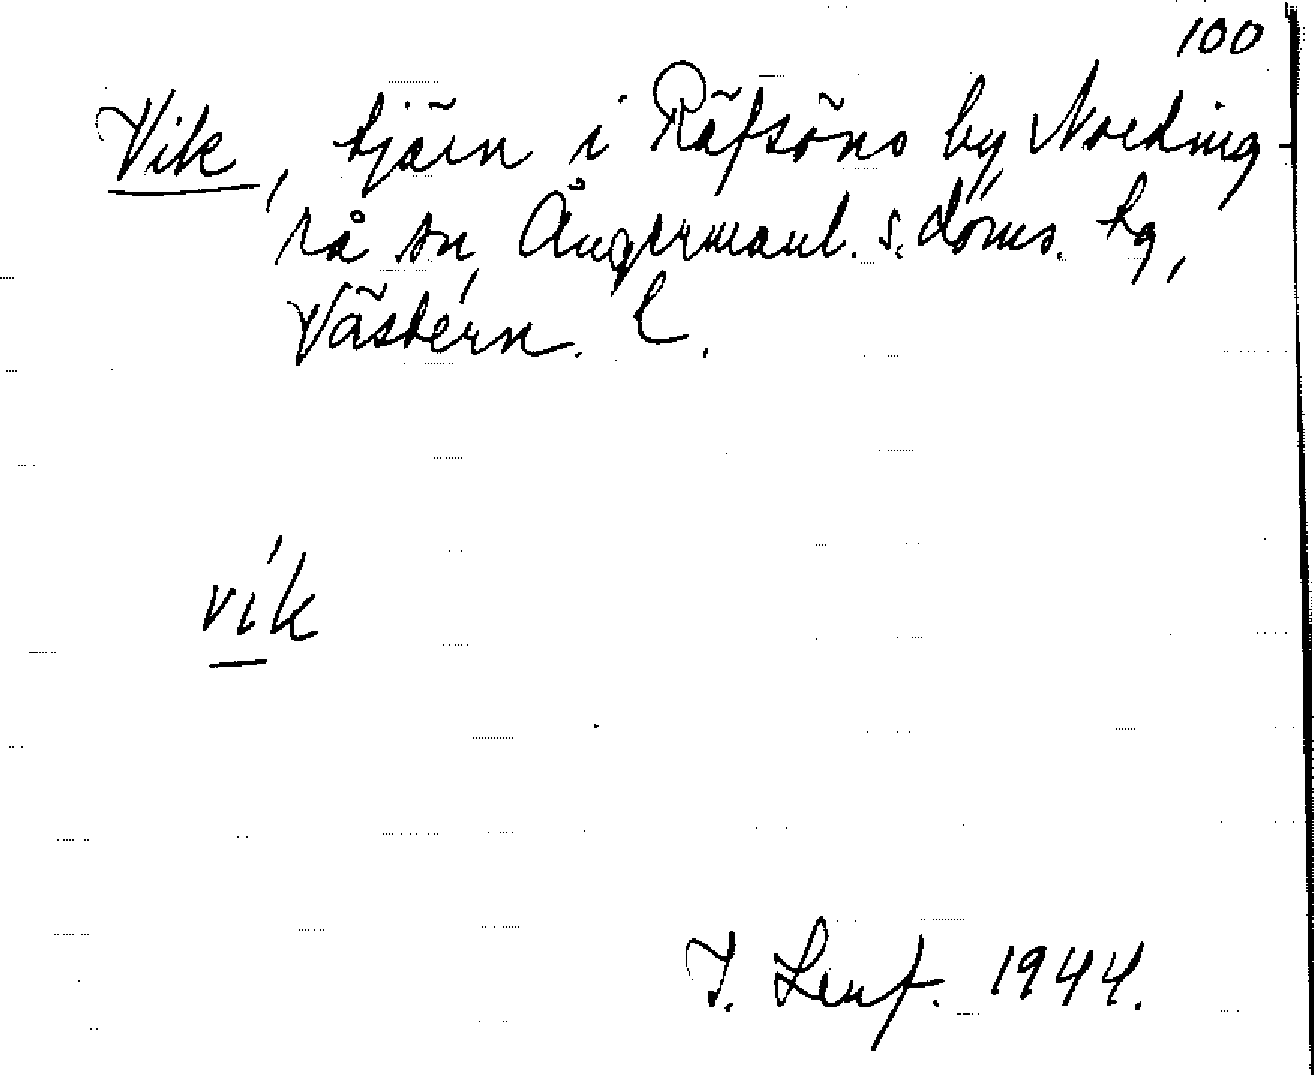 100
Vik, tjärn i Räfsöns by Nording-
rå sn, Ångermanl. s. doms. tg,
Västern. l.
vík
J. Lenf. 1944.